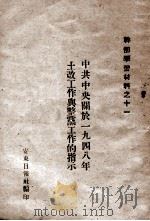 幹部學習材料之十一
中共中央關於一九四八年
土改工作與整黨工作的指示
安東日報社翻印